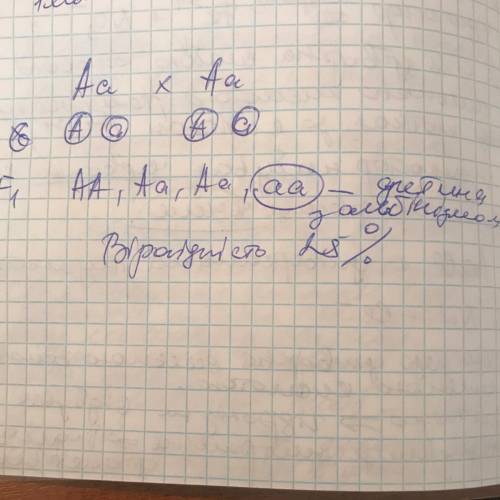 Aa x Aa
G A a A a
F1 AA, Aa, Aa, aa — дитина
з альбінізмом
Вірогідність 25%